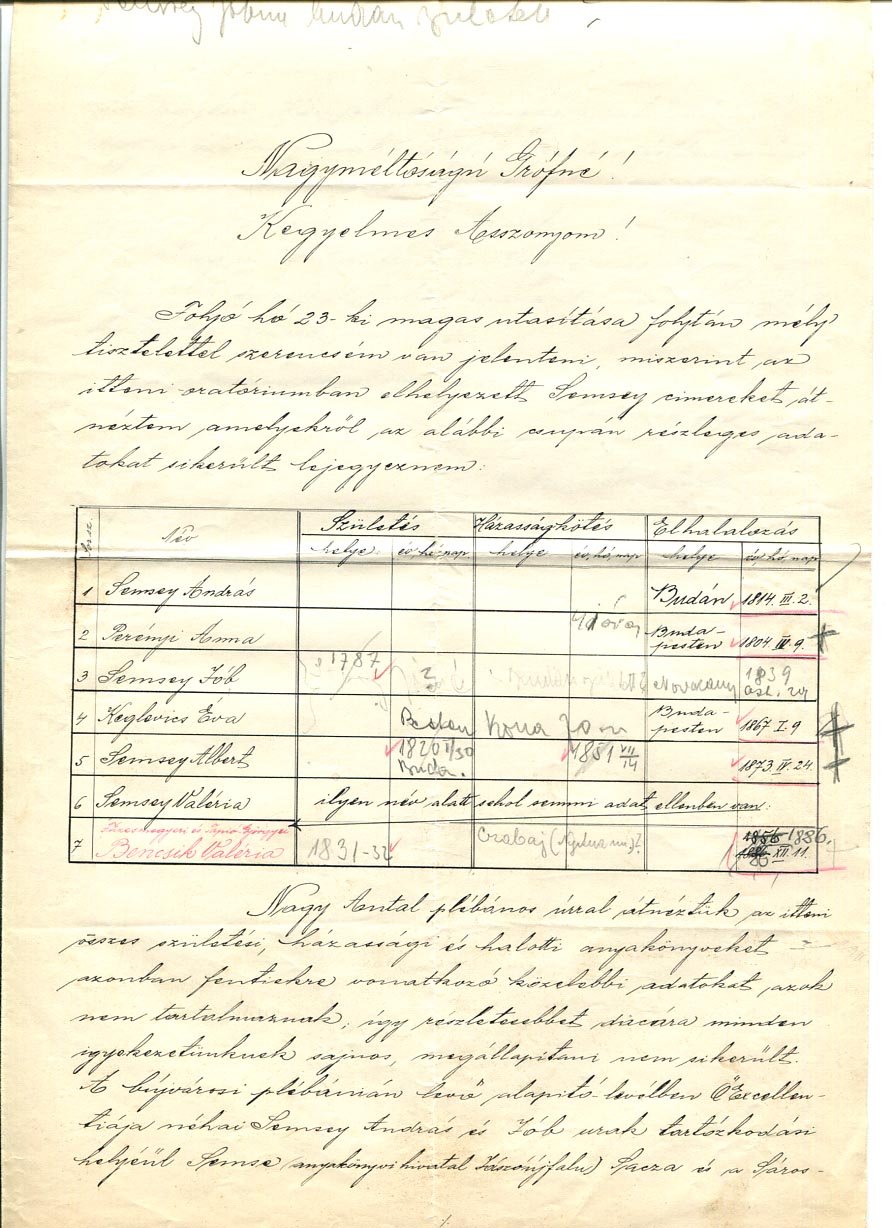 Semsey Jóbnak András
Nagyméltóságú Grófné!
Kegyelmes Asszonyom!
Folyó hó 23-ki magas utasítása folytán mély
tisztelettel szerencsém van jelenteni, miszerint az
itteni oratóriumban elhelyezett Semsey cimereket át-
néztem amelyekről az alábbi csupán részleges ada-
tokat sikerült lejegyeznem:
Név Születés Házasságkötés Elhalalozás
helye: év, hó, nap. helye év, hó, nap helye év, hó, nap
1 Semsey András Budán 1814. III. 2.
2 Perényi Anna Buda-pesten 1804. IV. 9.
3 Semsey Jób 1787 ? 1839
4 Keglevics Éva Pesten Buda-pesten 1867 I. 9
5 Semsey Albert 1820 I/30 Buda. 1851 VII/14 1873. IV. 24.
6 Semsey Valéria ilyen név alatt sehol semmi adat, ellenben van:
7 Bencsik Valéria 1831-32 Czabaj 1886. XII. 11.
Nagy Antal plébános úrral átnéztük az itteni
összes születési, házassági és halotti anyakönyveket
azonban fentiekre vonatkozó közelebbi adatokat azok
nem tartalmaznak; így részletesebbet daczára minden
igyekezetünknek sajnos, megállapitani nem sikerült.
A büjvárosi plébánián levő alapitó-levélben Ő Excellen-
tiája néhai Semsey András és Jób urak tartózkodási
helyéül Semse (anyakönyvi hivatal Jászóújfalu) Sacza és a Sáros-